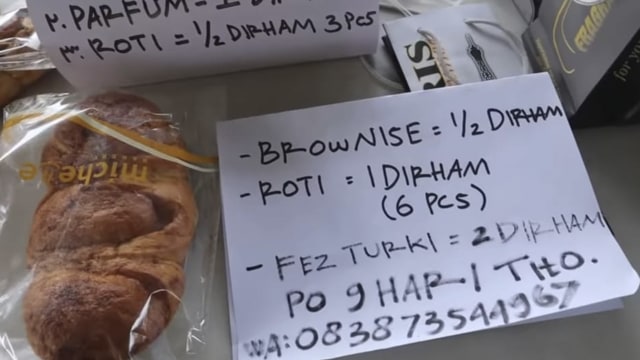 ٢. PARFUM =
٣. ROTI = 1/2 DIRHAM 3 PCS
michele
RIS
FRAGRA
for
- BROWNISE = 1/2 DIRHAM
- ROTI = 1 DIRHAM
(6 PCS)
- FEZ TURKI = 2 DIRHAM
PO 9 HARI THO.
WA: 083873544967